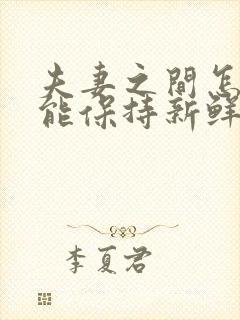 夫妻之間怎
能保持新鮮
李夏君